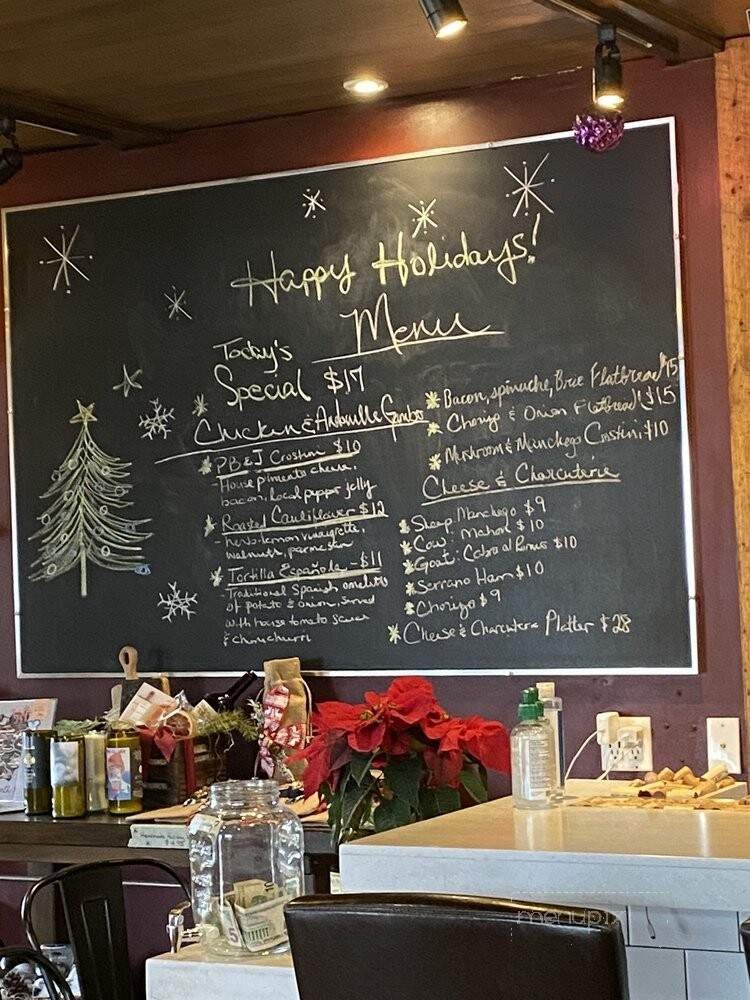 Happy Holidays!
Menu
Today's
Special $17
Chicken & Andouille Gumbo
PB&J Crostini $10
House pimento cheese,
bacon, local pepper jelly
Roasted Cauliflower $12
- herb lemon vinaigrette,
walnuts, parmesan
Tortilla Española - $11
- Traditional Spanish omelette
of potato & onion, served
with house tomato sauce
& chimichurri
Bacon, spinache, Brie Flatbread $15
Chorizo & Onion Flatbread $15
Mushroom & Manchego Crostini, $10
Cheese & Charcuterie
Sheep: Manchego $9
Cow: Mahon $10
Goat: Cabra al $10
Serrano Ham $10
Chorizo $9
Cheese & Charcuterie Platter $28
menupix